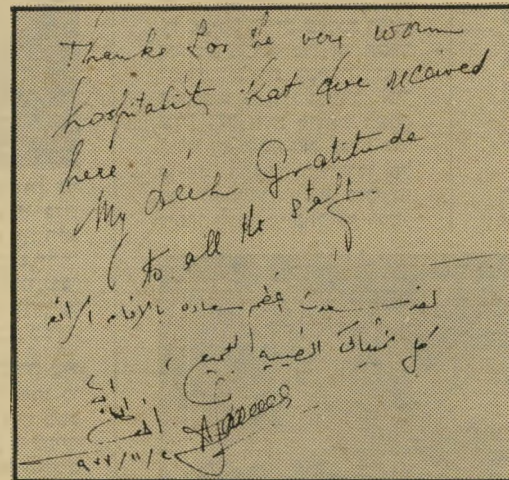 Thanks for the very worm
hospitality that due received
here.
My deeh Gratitude
to all the staff.
لقد سعدت أعظم سعاده بالاقامه الرائعه
كل تمنياتى الطيبيه للجميع ،